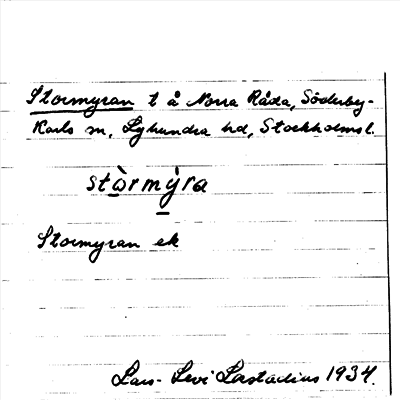 Stormyran t å Norra Råda, Söderby-
Karls sn, Lyhundra hd, Stockholms l.
stò̱rmỳ̱ra
Stormyran ek
Lars-Levi Læstadius 1934.